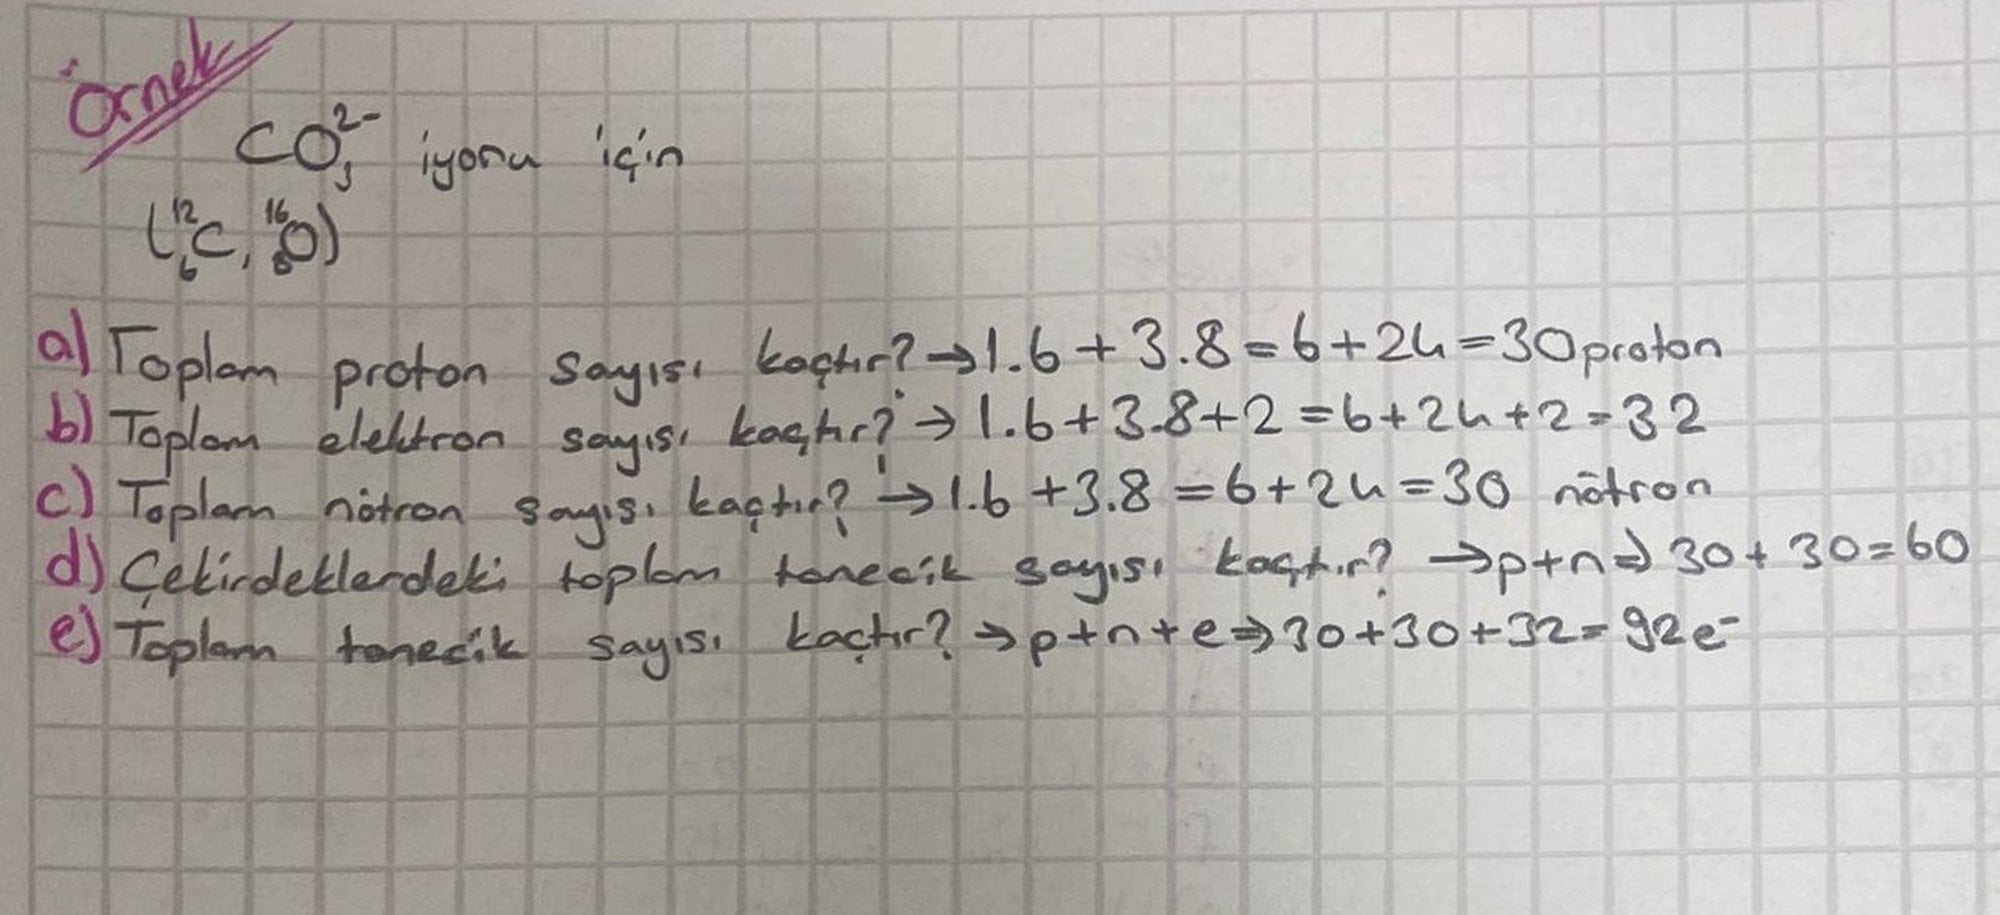 Örnek
CO₃²⁻ iyonu için
(¹²₆C, ¹⁶₈O)
a) Toplam proton sayısı kaçtır? → 1.6 + 3.8 = 6 + 24 = 30 proton
b) Toplam elektron sayısı kaçtır? → 1.6 + 3.8 + 2 = 6 + 24 + 2 = 32
c) Toplam nötron sayısı kaçtır? → 1.6 + 3.8 = 6 + 24 = 30 nötron
d) Çekirdeklerdeki toplam tanecik sayısı kaçtır? → p+n ⇒ 30 + 30 = 60
e) Toplam tanecik sayısı kaçtır? → p+n+e ⇒ 30+30+32 = 92e⁻